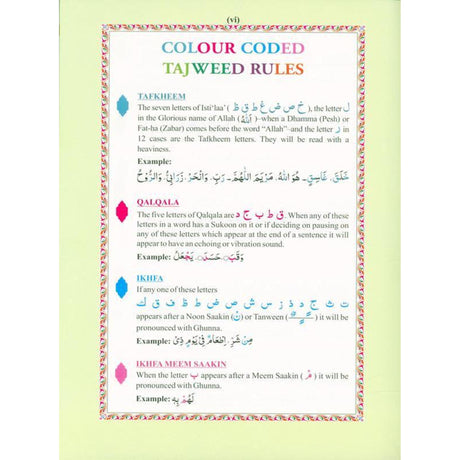 (vi)
COLOUR CODED
TAJWEED RULES
TAFKHEEM
The seven letters of Isti'laa' ( خ ص ض غ ط ق ظ ), the letter ل
in the Glorious name of Allah ( اَللّٰهُ )–when a Dhamma (Pesh) or
Fat-ha (Zabar) comes before the word "Allah"-and the letter ر in
12 cases are the Tafkheem letters. They will be read with
heaviness.
Example:
خَلَقَ، غَاسِقٍ۔ هُوَ اللّٰهُ، مَرْيَمَ اللّٰهُمَّ۔ رَبِّ، وَالْحَرِّ، زَرَابِيُّ، وَالرُّوْحُ
QALQALA
The five letters of Qalqala are ق ط ب ج د. When any of these
letters in a word has a Sukoon on it or if deciding on pausing on
any of these letters which appear at the end of a sentence it will
appear to have an echoing or vibration sound.
Example: وَقَبَ، حَسَدَ، يَجْعَلُ
IKHFA
If any one of these letters
ت ث ج د ذ ز س ش ص ض ط ظ ف ق ك
appears after a Noon Saakin ( نْ ) or Tanween ( ـًـٍـٌ ) it will be
pronounced with Ghunna.
مِنْ شَرِّ، اِطْعَامٌ فِيْ يَوْمٍ ذِيْ
IKHFA MEEM SAAKIN
When the letter ب appears after a Meem Saakin ( مْ ) it will be
pronounced with Ghunna.
Example: لَهُمْ بِهٖ